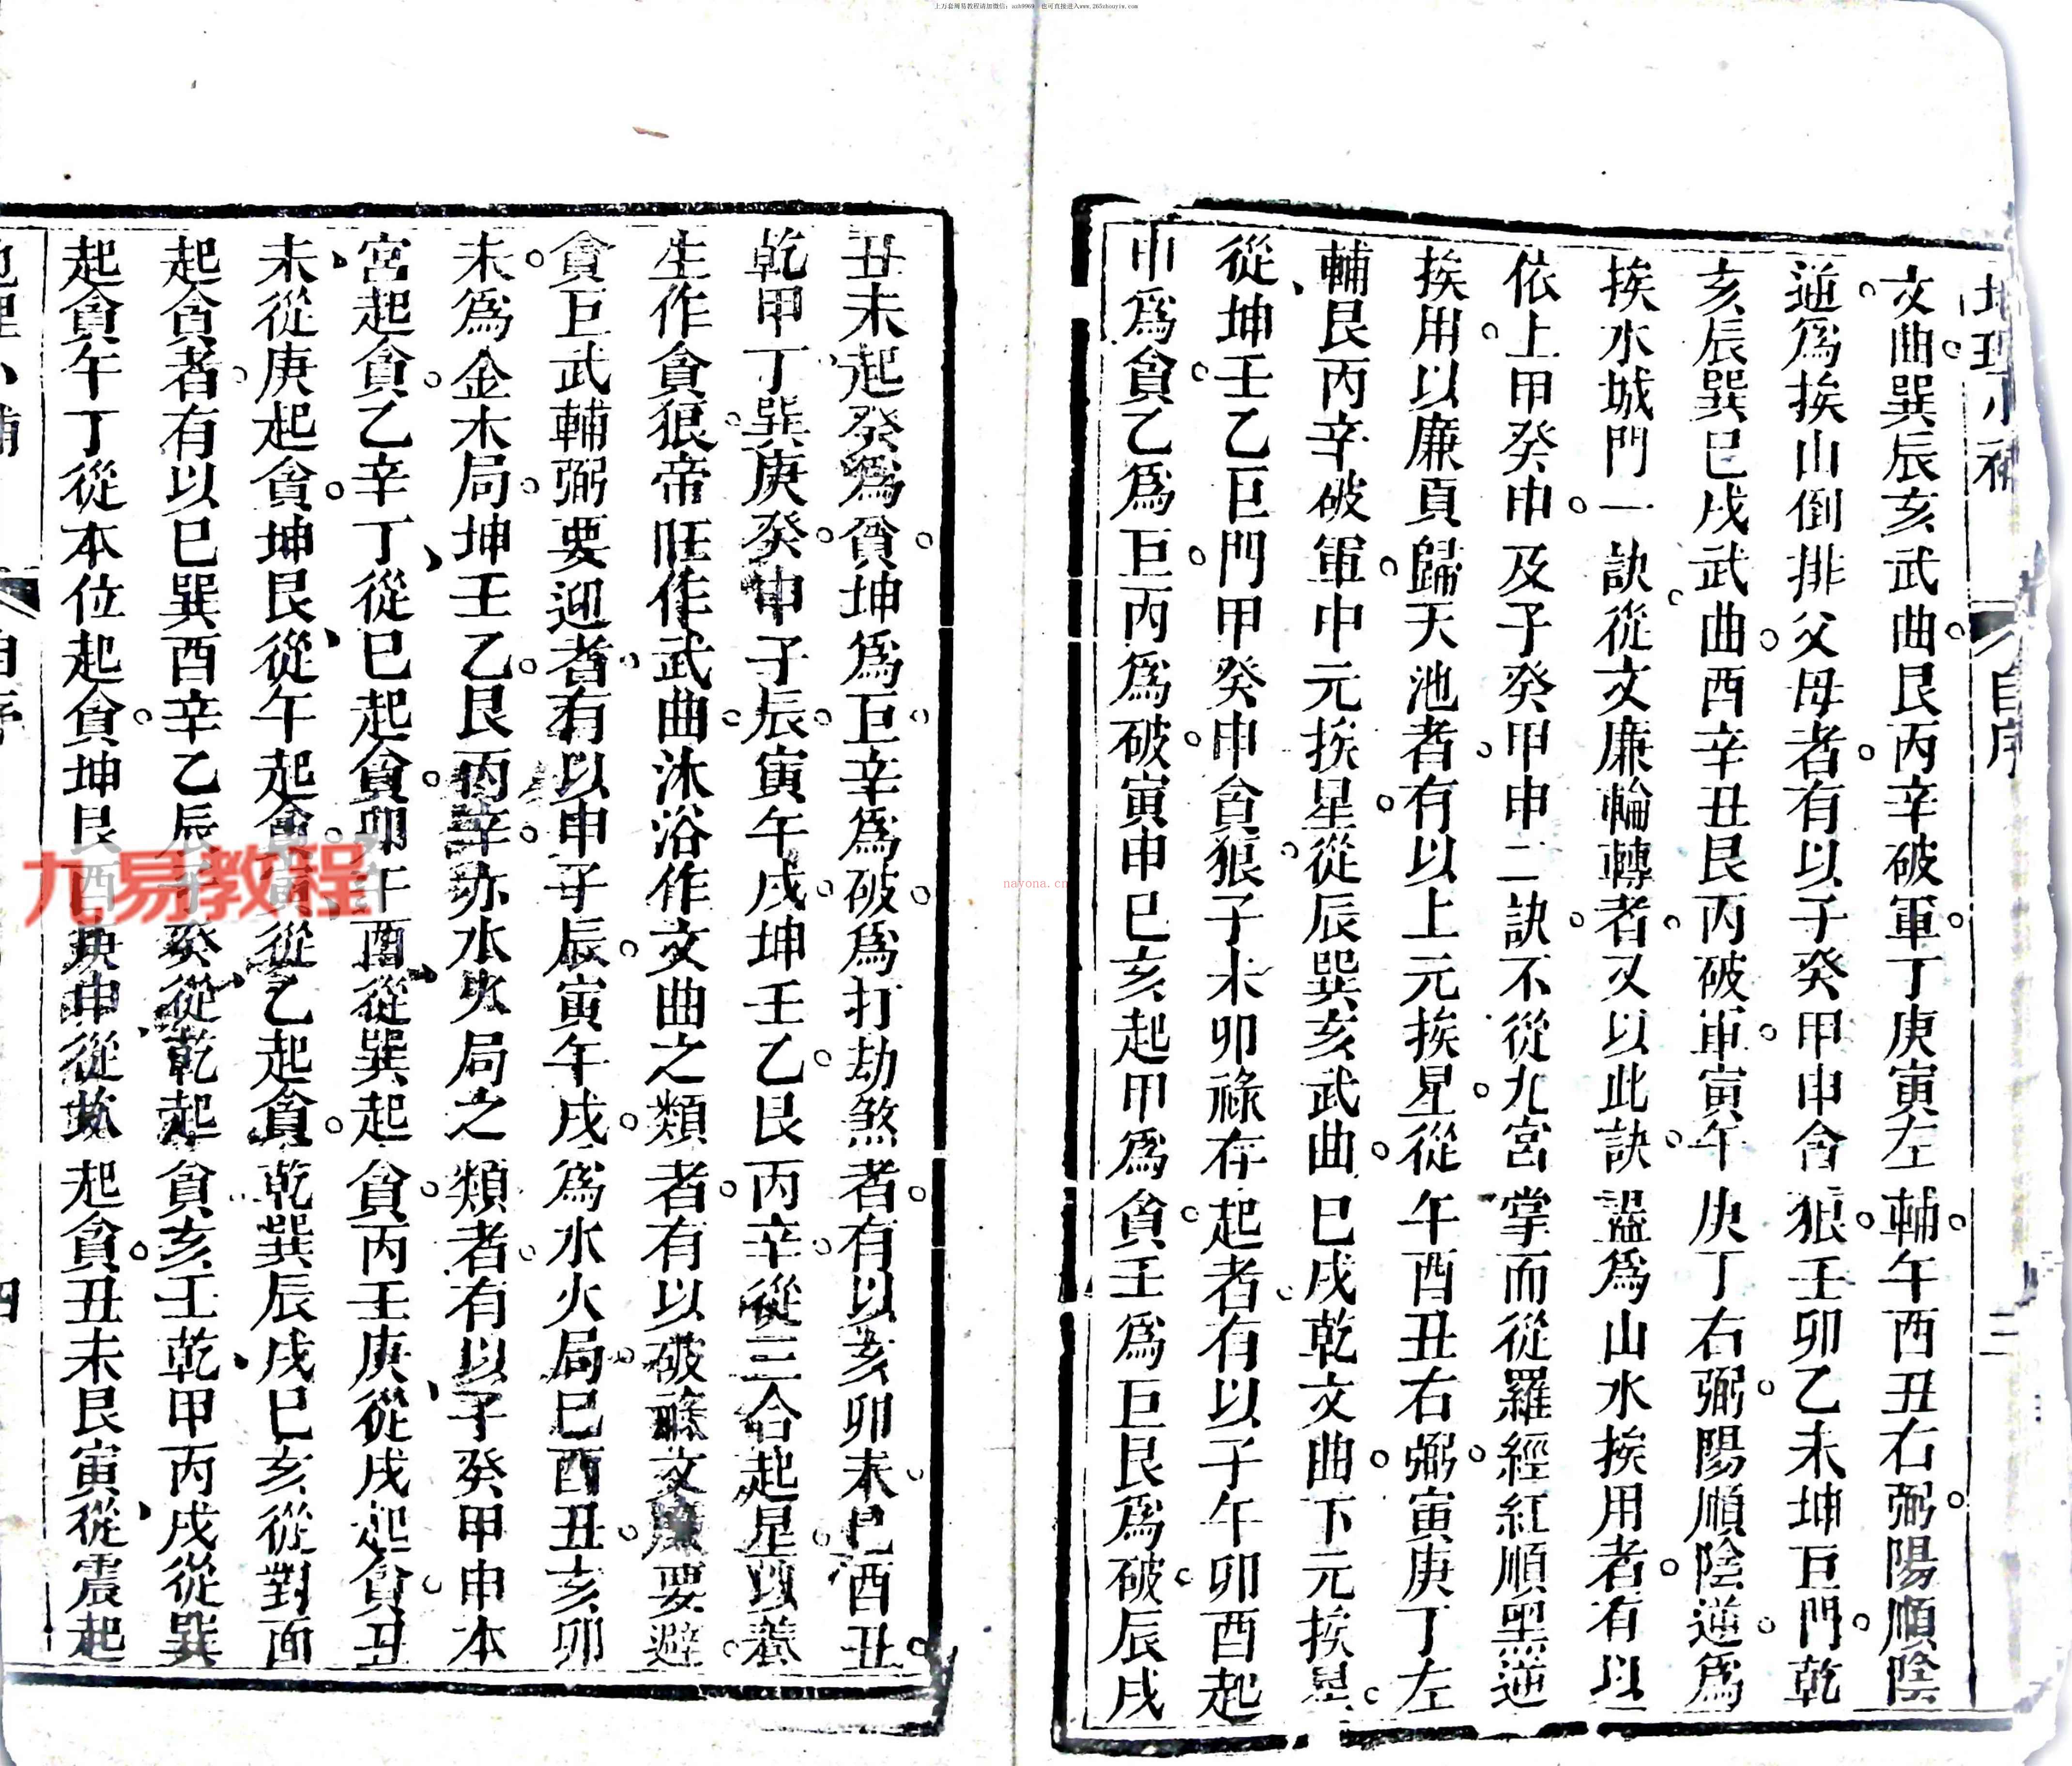 上万套周易教程请加微信：nxh9969 也可直接进入www.265zhouyiw.com
地理小補
自序
三
文曲巽辰亥武曲艮丙辛破軍丁庚寅左輔午酉丑右弼陽順陰
逆爲挨山倒排父母者有以子癸甲申貪狼壬卯乙未坤巨門乾
亥辰巽巳戌武曲酉辛丑艮丙破軍寅午庚丁右弼陽順陰逆爲
挨水城門一訣從文廉輪轉者又以此訣謚爲山水挨用者有以
依上甲癸申及子癸甲申二訣不從九宮掌而從羅經紅順黑逆
挨用以廉貞歸天池者有以上元挨星從午酉丑右弼寅庚丁左
輔艮丙辛破軍中元挨星從辰巽亥武曲巳戌乾文曲下元挨星
從坤壬乙巨門甲癸申貪狼子未卯祿存起者有以子午卯酉起
申爲貪乙爲巨丙爲破寅申巳亥起甲爲貪壬爲巨艮爲破辰戌
丑未起癸爲貪坤爲巨辛爲破爲打劫煞者有以亥卯未巳酉丑
乾甲丁巽庚癸申子辰寅午戌坤壬乙艮丙辛從三合起星以養
生作貪狼帝旺作武曲沐浴作文曲之類者有以破祿文廉要避
貪巨武輔弼要迎者有以申子辰寅午戌爲水火局巳酉丑亥卯
未爲金木局坤壬乙艮丙辛亦水火局之類者有以子癸甲申本
宮起貪乙辛丁從巳起貪卯午酉從巽起貪丙壬庚從戌起貪丑
未從庚起貪坤艮從午起貪寅從乙起貪乾巽辰戌巳亥從對面
起貪者有以巳巽酉辛乙辰子癸從乾起貪亥壬乾甲丙戌從巽
起貪午丁從本位起貪坤艮酉庚申從兌起貪丑未艮寅從震起
地理小補
自序
四
九易教程
nayona.cn